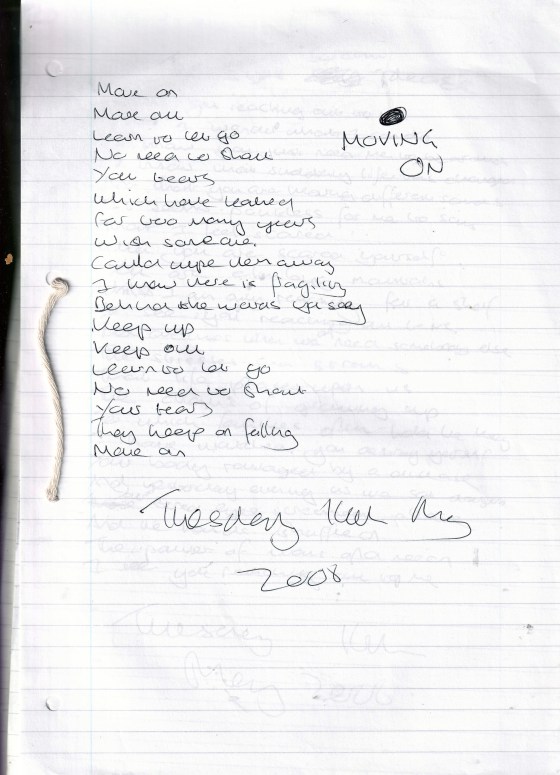 MOVING
ON
Move on
Move on
Learn to let go
No need to share
Your tears
Which have leaked
For too many years
Wish someone
Could wipe them away
I know there is fragility
Behind the words you say
Keep up
Keep on
Learn to let go
No need to share
Your tears
They keep on falling
Move on
Tuesday May
2008